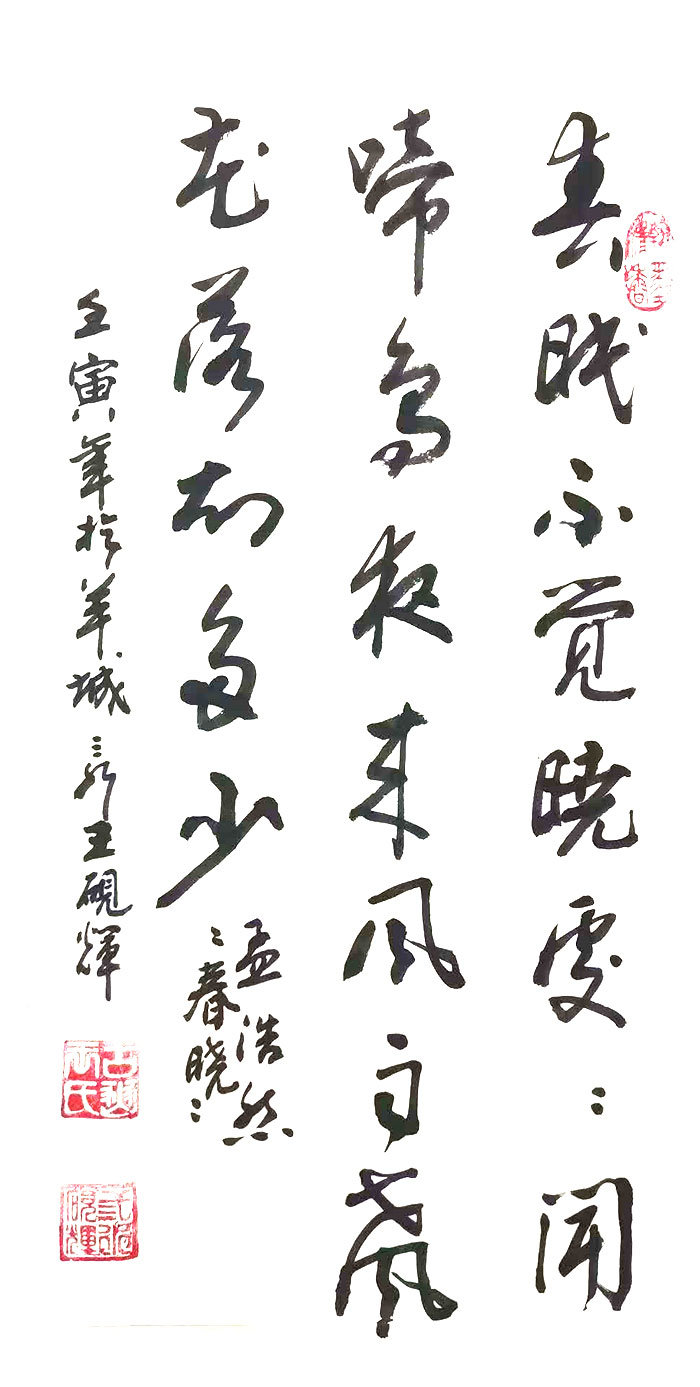 春眠不觉晓處〻闻
啼鸟夜来风雨声
花落知多少
孟浩然
:春晓:
壬寅年於羊城王硯輝